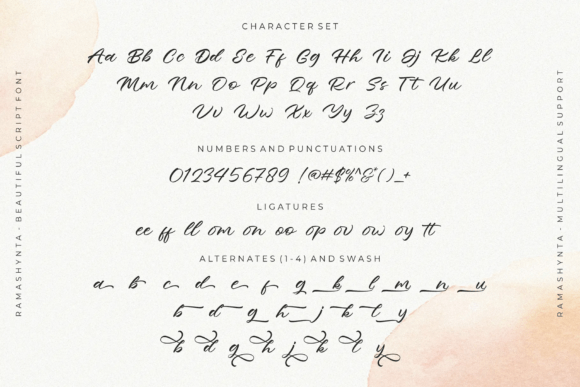 CHARACTER SET
Aa Bb Cc Dd Ee Ff Gg Hh Ii Jj Kk Ll
Mm Nn Oo Pp Qq Rr Ss Tt Uu
Vv Ww Xx Yy Zz
NUMBERS AND PUNCTUATIONS
0123456789 !@#$%^&*()_+
LIGATURES
ee ff ll om on oo op ov ow oy tt
ALTERNATES (1-4) AND SWASH
a b c d e f g k l m n u
b d g h j k t y
b d g h j k t y
RAMASHYNTA - BEAUTIFUL SCRIPT FONT
RAMASHYNTA - MULTILINGUAL SUPPORT